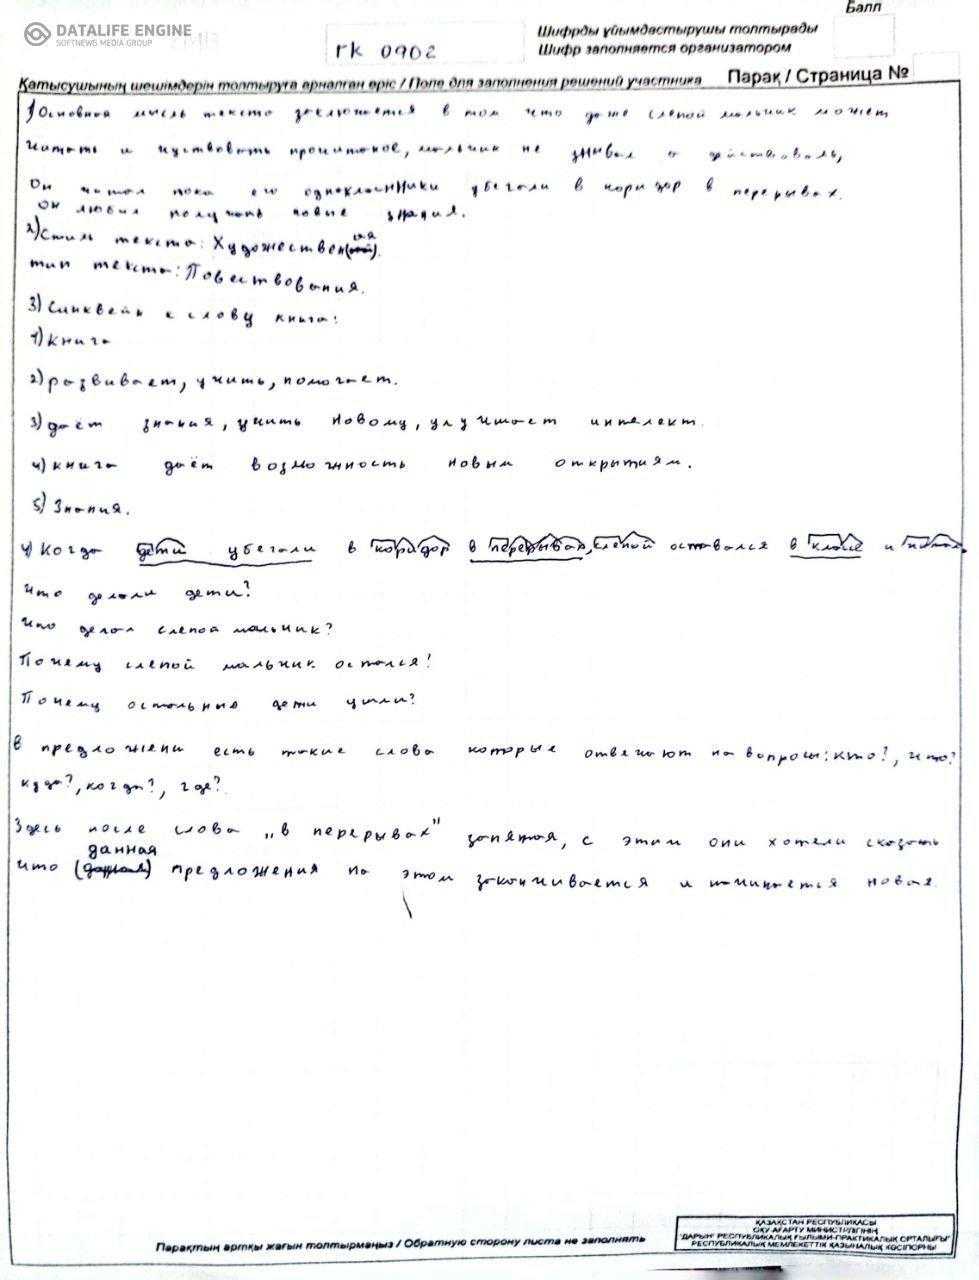 Балл
DATALIFE ENGINE
SOFTNEWS MEDIA GROUP
ГК 0902
Шифрды ұйымдастырушы толтырады
Шифр заполняется организатором
Қатысушының шешімдерін толтыруға арналған өріс / Поле для заполнения решений участника Парақ / Страница №
1) Основная мысль текста заключается в том что даже слепой мальчик может
читать и чуствовать прочитаное, мальчик не унывал а
Он читал пока его однокласники убегали в коридор в перерывах.
он любил получать новые знания.
2) Стиль текста: Художествен ая
тип текста: Повествования.
3) Синквейн к слову книга:
1) Книга
2) развивает, учить, помогает.
3) даёт знания, учить новому, улучшает интелект.
4) книга даёт возможность новым открытиям.
5) Знания.
4) Когда дети убегали в коридор в перерывах, слепой оставался в класе и читал.
Что делали дети?
Что делал слепой мальчик?
Почему слепой мальчик остался?
Почему остальные дети ушли?
В предложени есть такие слова которые отвечают на вопросы: кто?, что?
куда?, когда?, где?
Здесь после слова „в перерывах" запятая, с этим они хотели сказать
что данная предложения на этом заканчивается и начинается новая.
Парақтың артқы жағын толтырмаңыз / Обратную сторону листа не заполнять
ҚАЗАҚСТАН РЕСПУБЛИКАСЫ
ОҚУ-АҒАРТУ МИНИСТРЛІГІНІҢ
"ДАРЫН" РЕСПУБЛИКАЛЫҚ ҒЫЛЫМИ-ПРАКТИКАЛЫҚ ОРТАЛЫҒЫ"
РЕСПУБЛИКАЛЫҚ МЕМЛЕКЕТТІК ҚАЗЫНАЛЫҚ КӘСІПОРНЫ